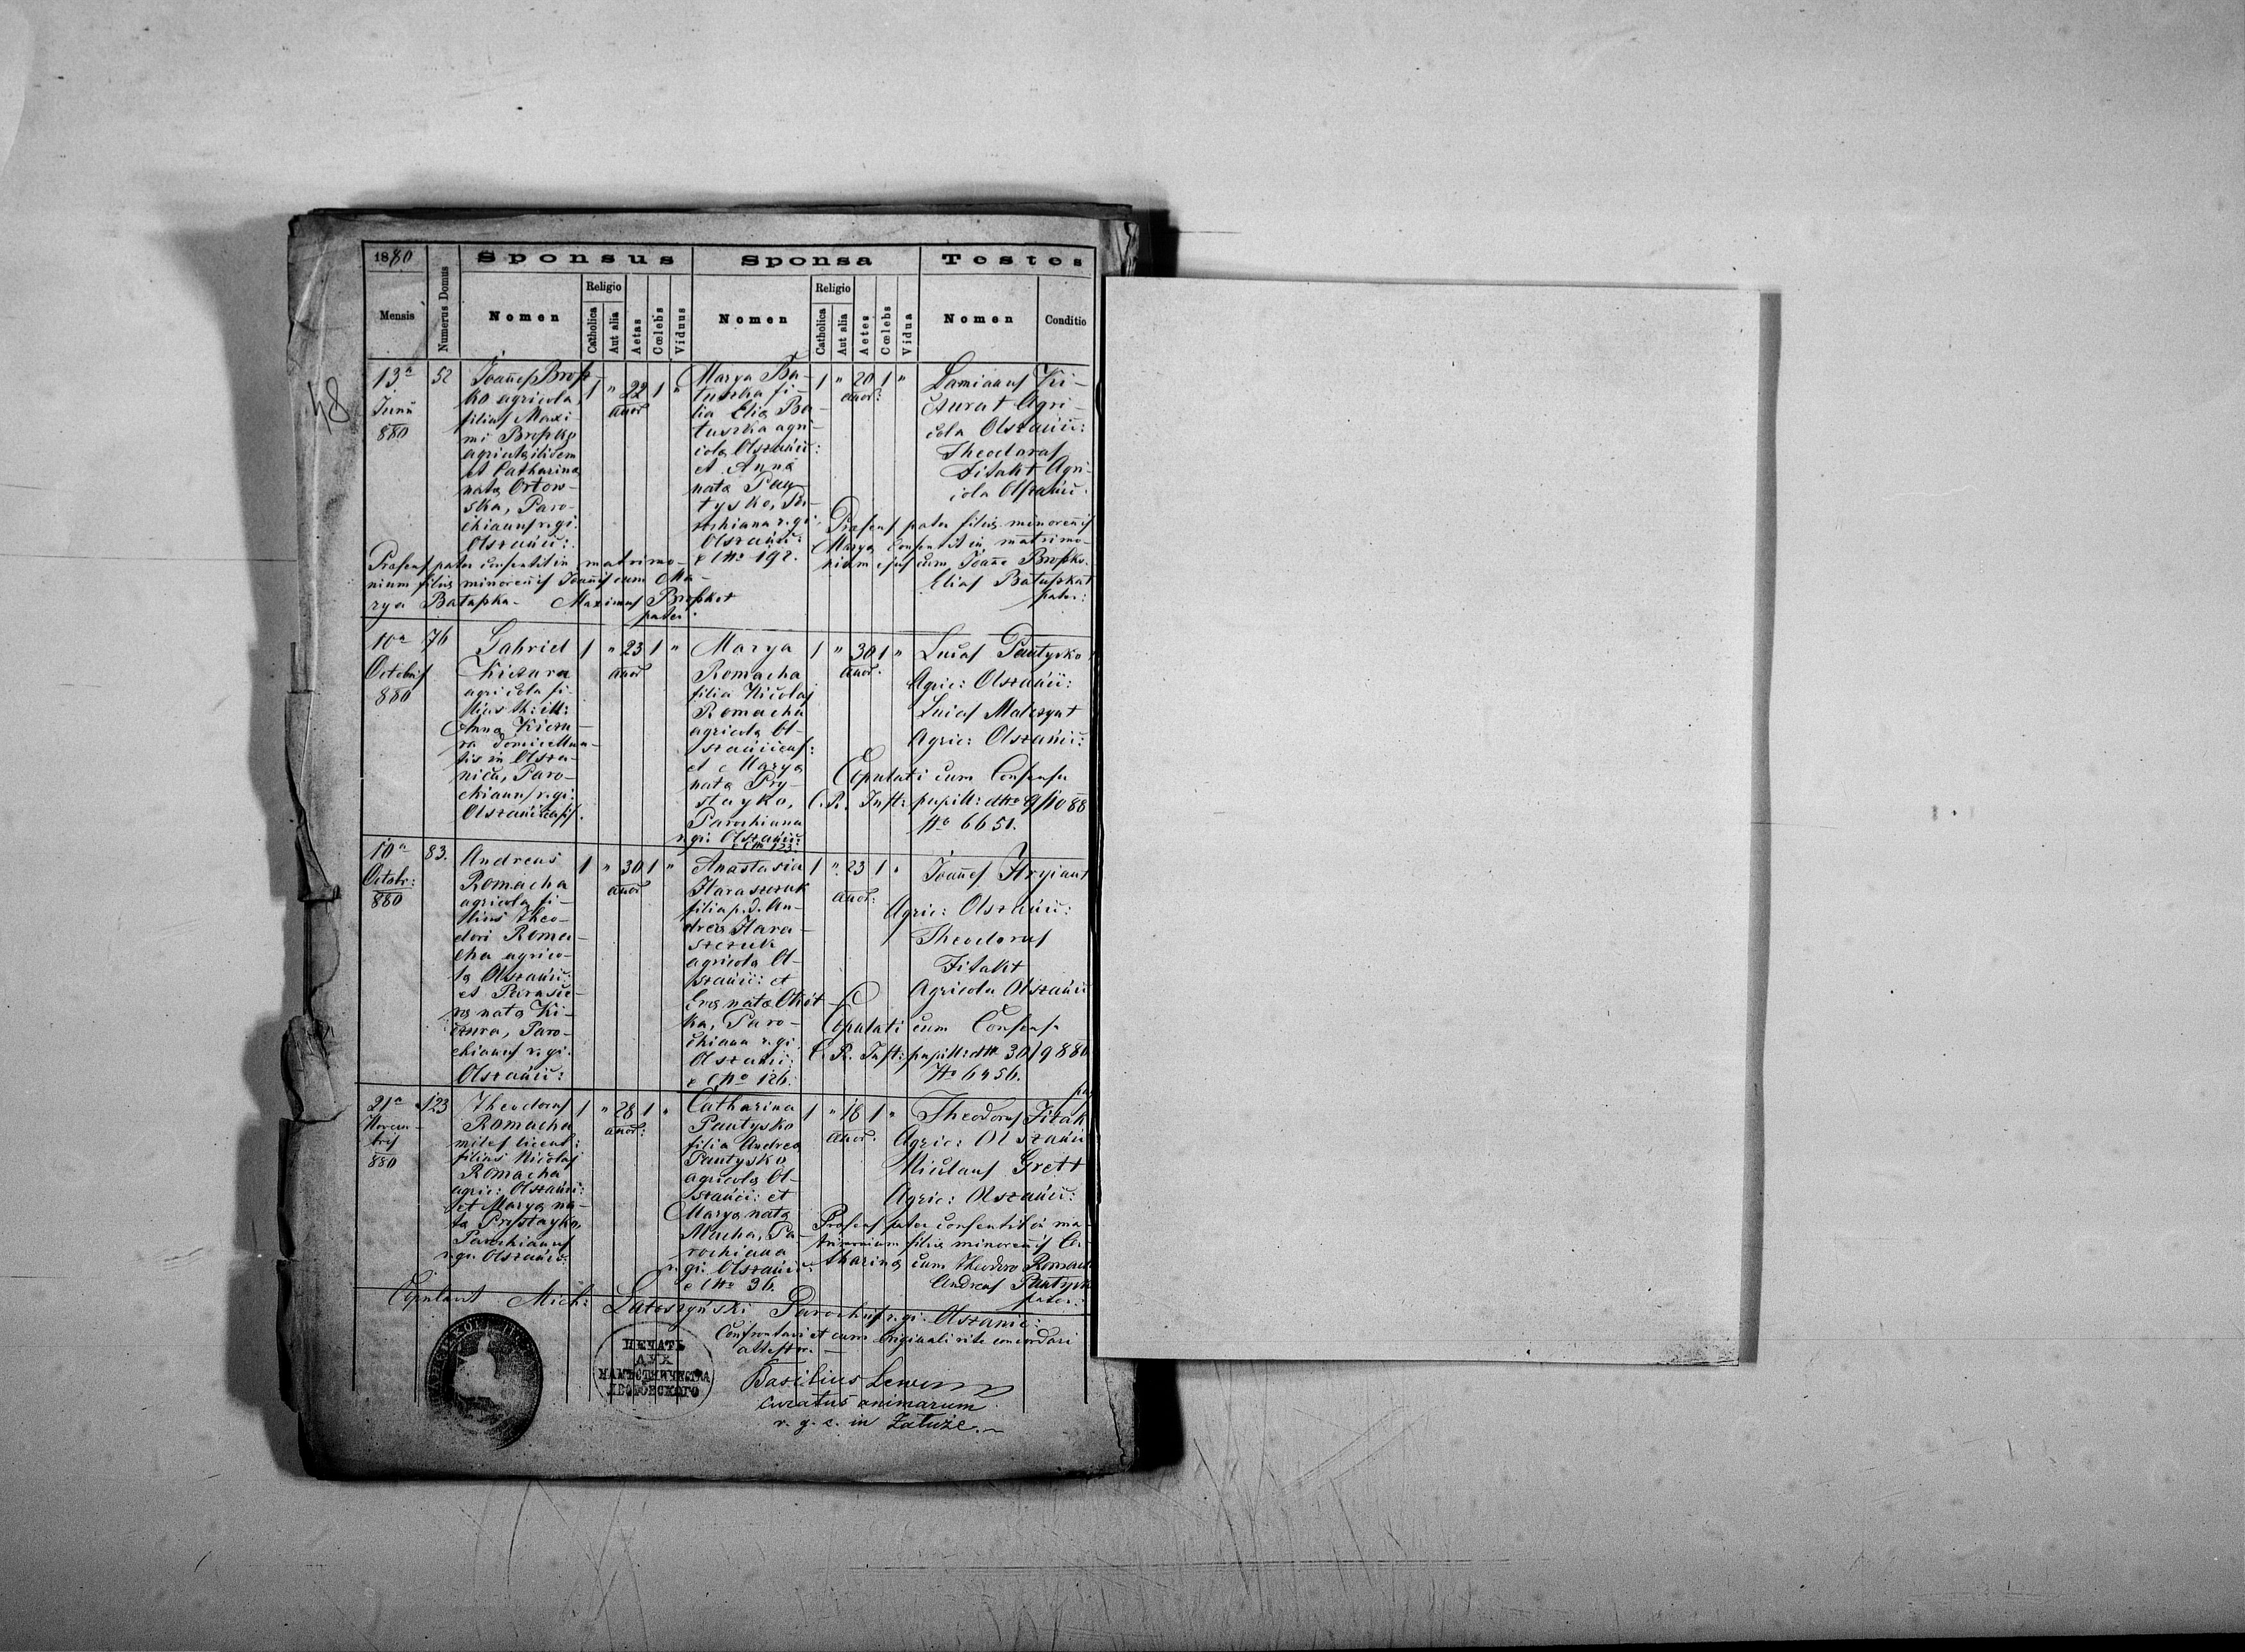 1880
Sponsus
Sponsa
Testes
Mensis
Numerus Domus
Nomen
Religio
Catholica
Aut alia
Aetas
Cœlebs
Viduus
Nomen
Religio
Catholica
Aut alia
Aetes
Cœlebs
Vidua
Nomen
Conditio
48
13a
Junii
880
52
Joañes Brosz-
ko agricola
filius Maxi-
mi Broszko
agricola ibidem
et Catharina
nata Ortow-
ska, Paro-
chianus r. gr.
Olszanic:
1 " 22 1 "
anor
Marya Ba-
tuszka fi-
lia Elia Ba-
tuszka agri-
cola Olszanic:
et Anna
nata Pau-
tysko, Pa-
rochiana r. gr.
Olszanic:
e CNo 192.
1 " 20 1 "
anor:
Damianus Ki-
czura + Agri-
cola Olszanic:
Theodorus
Fitak + Agri-
cola Olszanic.
Præsens pater consentit in matrimo-
nium filii minorenis Joannis cum Ma-
rya Batuszka. Maximus Broszko +
pater.
Præsens pater filiæ minorenis
Marya consentit in matrimo-
nium ejus cum Joanne Broszko.
Elias Batuszka +
pater:
10a
Octobris
880
76
Gabriel
Kiczura
agricola fi-
lius
Anna Kiczu-
ra
in Olsza-
nica, Paro-
chianus r. gr.
Olszanicensis.
1 " 23 1 "
anor
Marya
Romacha
filia Nicolaj
Romacha
agricola Ol-
szanicens:
et Marya
nata Pry-
stayko,
Parochiana
r. gr. Olszanic:
e CNo 123.
1 " 30 1 "
anor.
Lucas Pautysko +
Agric: Olszanic:
Lucas Maleszyn +
Agric: Olszanic:
Copulati cum Consensu
C. R. Inst: pupill: dtto 9/10 88
No 6651.
10a
Octobr:
880
83.
Andreas
Romacha
agricola fi-
lius Theo-
dori Roma-
cha agrico-
la Olszanic:
et Parasce-
va nata Ki-
czura, Paro-
chianus r. gr.
Olszanic:
1 " 30 1 "
anor
Anastasia
Haraszczuk
filia p. d. An-
drea Hara-
szczuk
agricola Ol-
szanic: et
Eva nata
Paro-
chiana r. gr.
Olszanic:
e CNo 126.
1 " 23 1 "
anor:
Joañes
Agric: Olszanic:
Theodorus
Fitak +
Agricola Olszanic
Copulati cum Consensu
C. R. Inst: pupill: dtto 30/9 880
No 6456.
21a
Novem-
bris
880
123
Theodorus
Romacha
miles licent:
filius Nicolaj
Romacha
agric: Olszanic:
et Marya na-
ta Prystayko,
Parochianus
r. gr. Olszanic:
1 " 28 1 "
anor:
Catharina
Pautysko
filia Andrea
Pautysko
agricola Ol-
szanic: et
Marya nata
Macha, Pa-
rochiana
r. gr. Olszanic:
e CNo 36.
1 " 18 1 "
anor.
Theodorus Fitak
Agric: Olszanic
Nicolaus Gret +
Agric: Olszanic:
Præsens pater consentit in ma-
trimonium filiæ minorenis Ca-
tharina cum Theodoro Romach
Andreas Pautysk
pater:
Copulavit Mich: Latoszyński Parochus r. gr. Olszanic:
Confrontavi et cum Originali rite concordari
attestor. —
Basilius Lewi
curatus animarum
r. g. c. in Załuże.
ПЕЧАТЬ
ДУХ
НАМѢСТНИЧЕСТВА
ЛЬВОВСКОГО